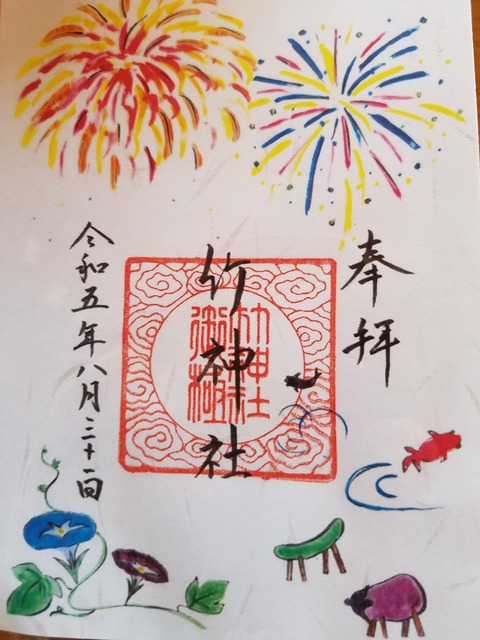 奉拝
竹神社
令和五年八月三十一日
竹神社